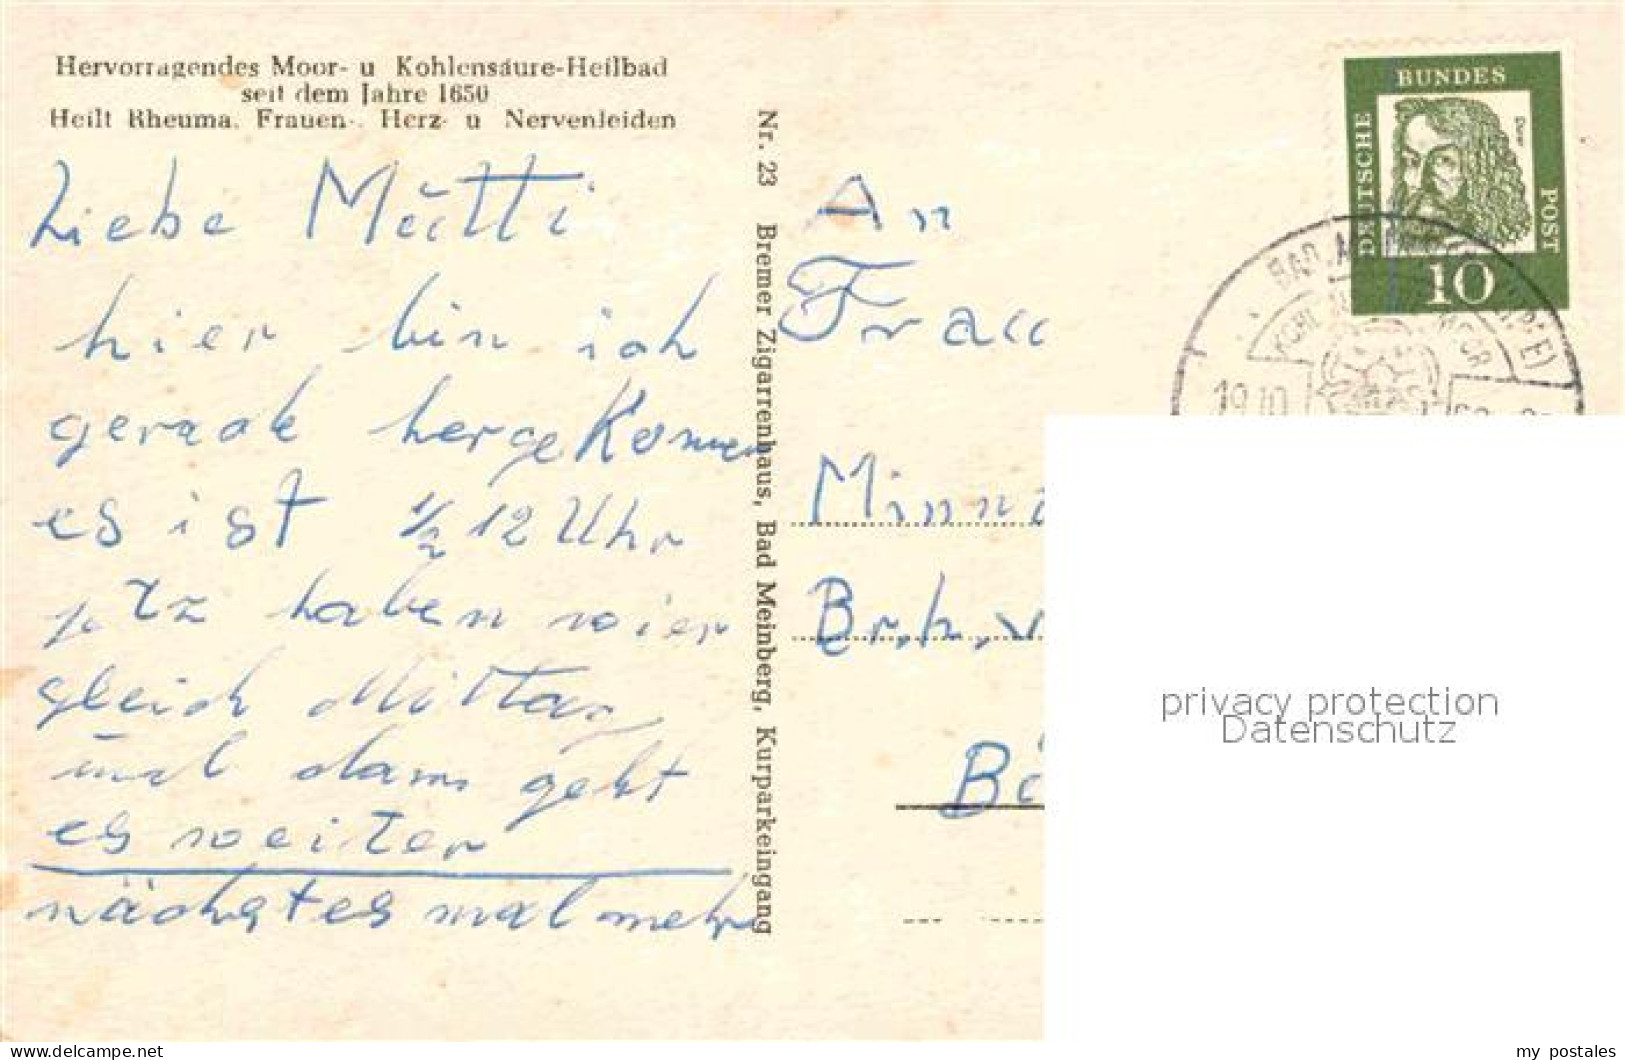 Hervorragendes Moor- u Kohlensäure-Heilbad
seit dem Jahre 1650
Heilt Rheuma, Frauen-, Herz- u Nervenleiden
Liebe Mutti
hier bin ich
gerade hergekommen
es ist 1/2 12 Uhr
jetz haben wier
gleich Mittag
und dann geht
es weiter
nächstes mal mehr
Nr. 23 Bremer Zigarrenhaus, Bad Meinberg, Kurparkeingang
An
Frau
Minna
Brh.v
Bü
DEUTSCHE
BUNDES
POST
Dürer
10
BAD
MOOR
19.10
privacy protection
Datenschutz
my postales